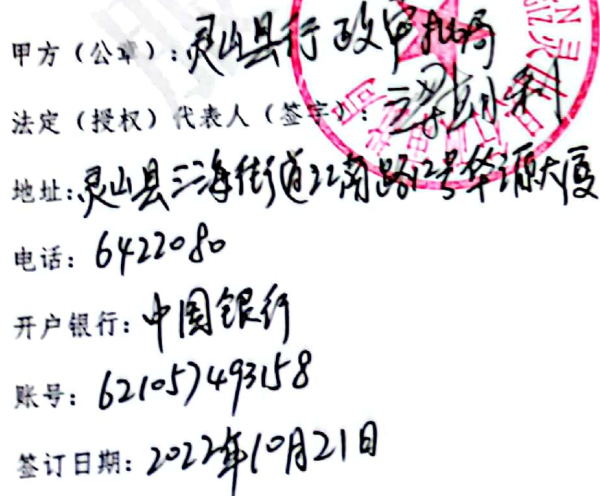 甲方（公章）：灵山县行政审批局
法定（授权）代表人（签字）：
地址：灵山县三海街道江南路12号华源大厦
电话：6422080
开户银行：中国银行
账号：621057493158
签订日期：2022年10月21日